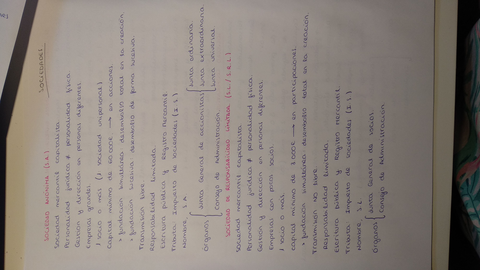 SOCIEDADES
SOCIEDAD ANÓNIMA (S.A)
Sociedad mercantil capitalista
Personalidad jurídica ≠ personalidad física
Gestión y dirección en personas diferentes
Empresas grandes
1 socio o más (1 sociedad unipersonal)
Capital mínimo de 60.000€ → en acciones
* Fundación simultánea: desembolso total en la creación
* Fundación sucesiva: desembolso de forma sucesiva
Transmisión libre
Responsabilidad limitada
Escritura pública y Registro Mercantil
Tributa: Impuesto de Sociedades (I.S)
Nombre, S.A
Órganos { Junta General de accionistas { Junta ordinaria
Junta extraordinaria
Junta universal
Consejo de Administración
SOCIEDAD DE RESPONSABILIDAD LIMITADA (S.L / S.R.L)
Sociedad mercantil capitalista
Personalidad jurídica ≠ personalidad física
Gestión y dirección en personas diferentes
Empresas con pocos socios
1 socio o más
Capital mínimo de 3.000€ → en participaciones
* Fundación simultánea: desembolso total en la creación
Transmisión no libre
Responsabilidad limitada
Escritura pública y Registro Mercantil
Tributa: Impuesto de Sociedades (I.S)
Nombre, S.L
Órganos { Junta General de socios
Consejo de Administración